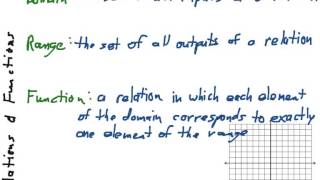 Range: the set of all outputs of a relation
Function: a relation in which each element
of the domain corresponds to exactly
one element of the range
lations & Functions